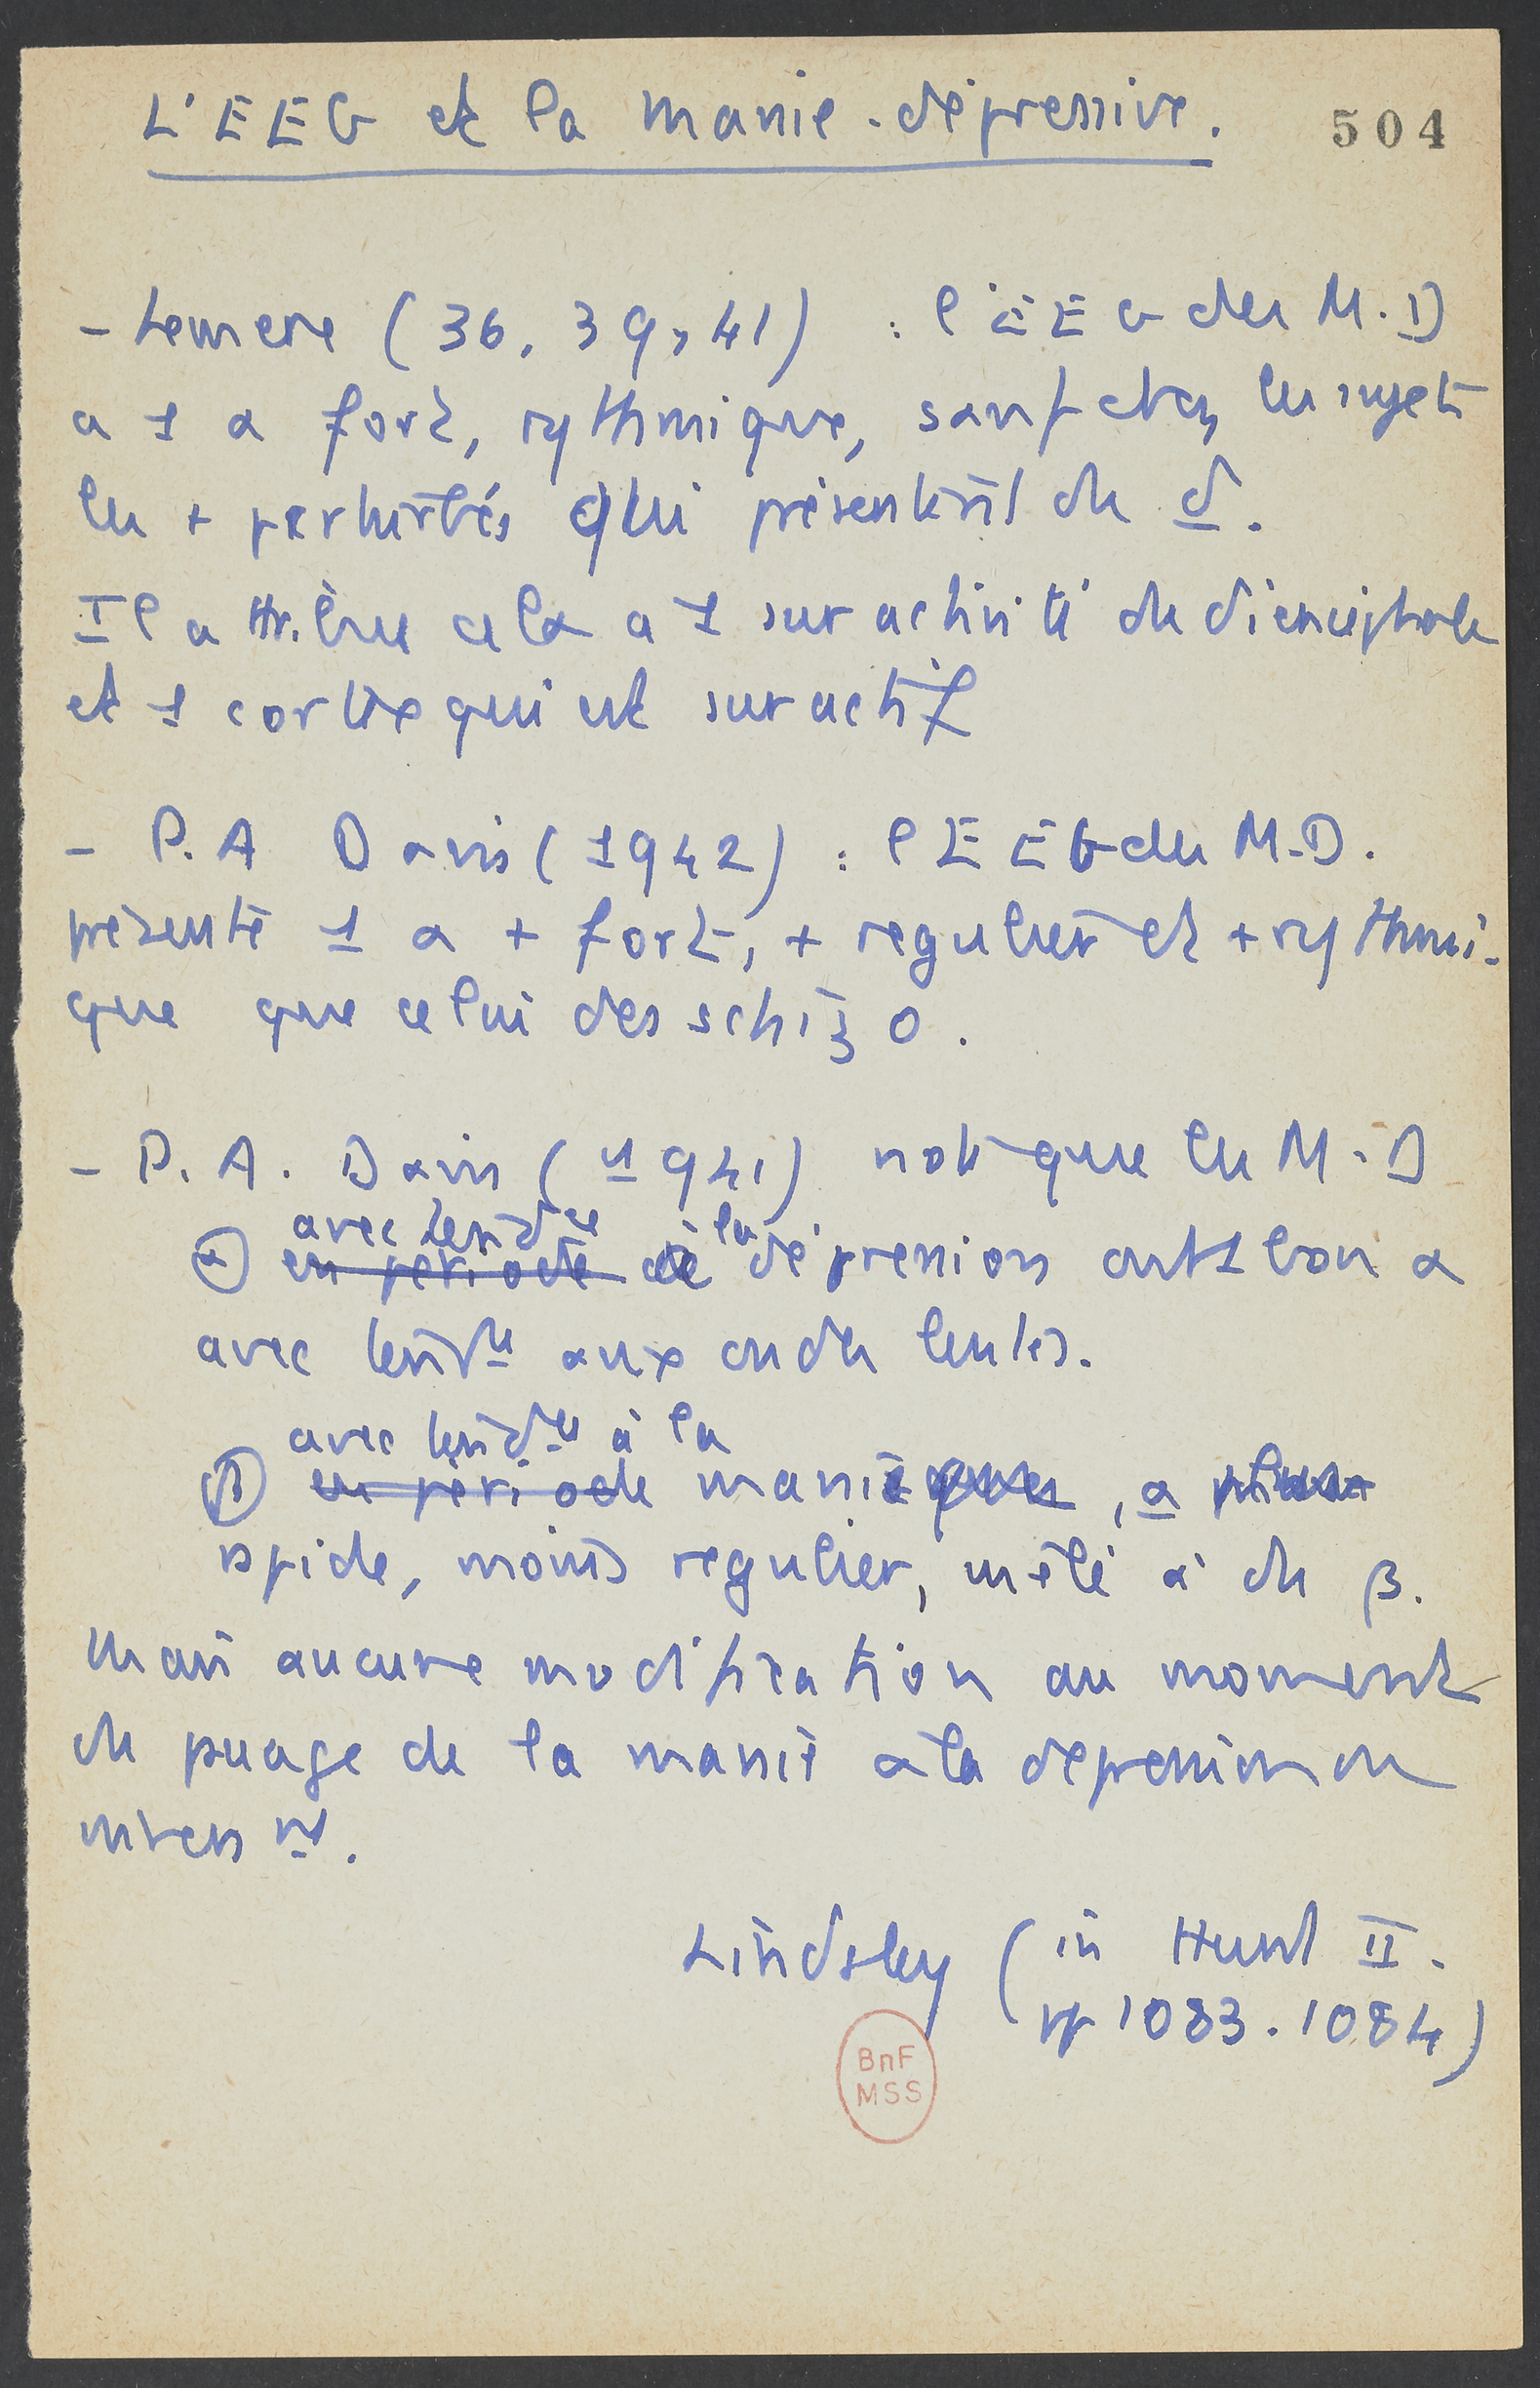 L'EEG et la manie-dépressive.
504
- Lemere (36, 39, 41) : l'EEG des M.D
a 1 α fort, rythmique, sauf chez les sujets
les + perturbés qui présentent de δ.
Il attribue cela a 1 suractivité du diencéphale
et 1 cortex qui est suractif
- P.A Davis (1942) : l'EEG des M.D.
présente 1 α + fort, + regulier et + rythmi-
que que celui des schizo.
- P.A. Davis (1941) note que les M.D
avec tendce
α) en période de à la dépression ont 1 bon α
avec tendce aux ondes lentes.
avec tendce à la
β) en période manie, α
rapide, moins regulier, mêlé à du β.
Mais aucune modification au moment
du passage de la manie à la depression ou
inversnt.
Lindsley (in Hunt II.
pp 1083.1084)
BnF
MSS